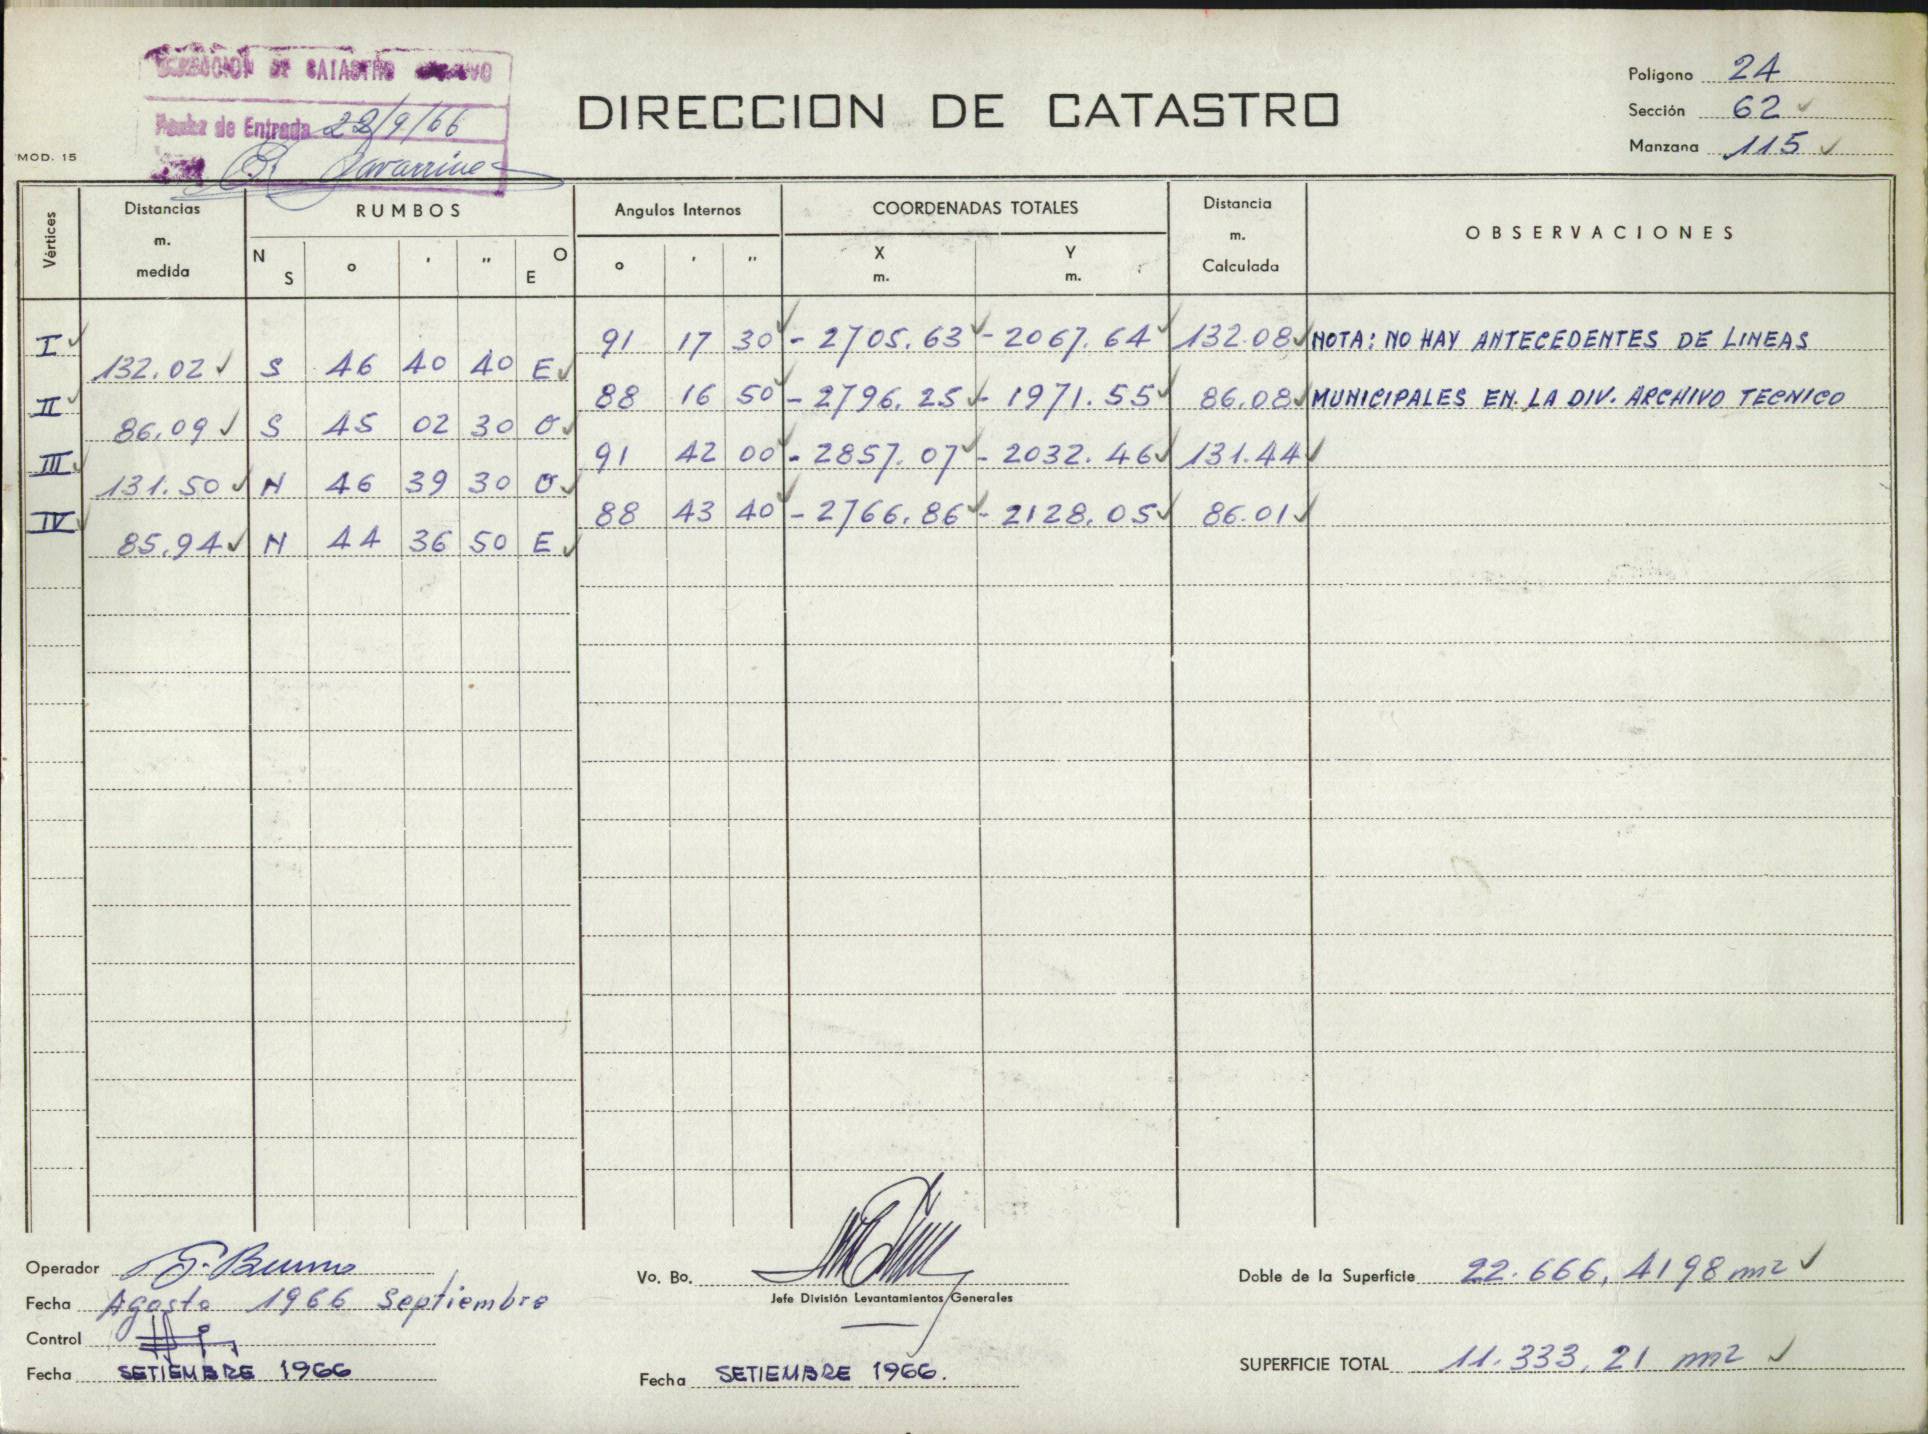 DIRECCION DE CATASTRO
Fecha de Entrada 22/9/66
DIRECCION DE CATASTRO
Polígono 24
Sección 62
Manzana 115
MOD. 15
Vértices
Distancias m. medida
RUMBOS
N S ° ' " O E
Angulos Internos
° ' "
COORDENADAS TOTALES
X m. Y m.
Distancia m. Calculada
OBSERVACIONES
I 91 17 30 - 2705.63 - 2067.64 132.08 NOTA: NO HAY ANTECEDENTES DE LINEAS
132.02 S 46 40 40 E
II 88 16 50 - 2796.25 - 1971.55 86.08 MUNICIPALES EN LA DIV. ARCHIVO TECNICO
86.09 S 45 02 30 O
III 91 42 00 - 2857.07 - 2032.46 131.44
131.50 N 46 39 30 O
IV 88 43 40 - 2766.86 - 2128.05 86.01
85.94 N 44 36 50 E
Operador
Fecha Agosto 1966 Septiembre
Control
Fecha SETIEMBRE 1966
Vo. Bo.
Jefe División Levantamientos Generales
Fecha SETIEMBRE 1966.
Doble de la Superficie 22.666,4198 m2
SUPERFICIE TOTAL 11.333,21 m2